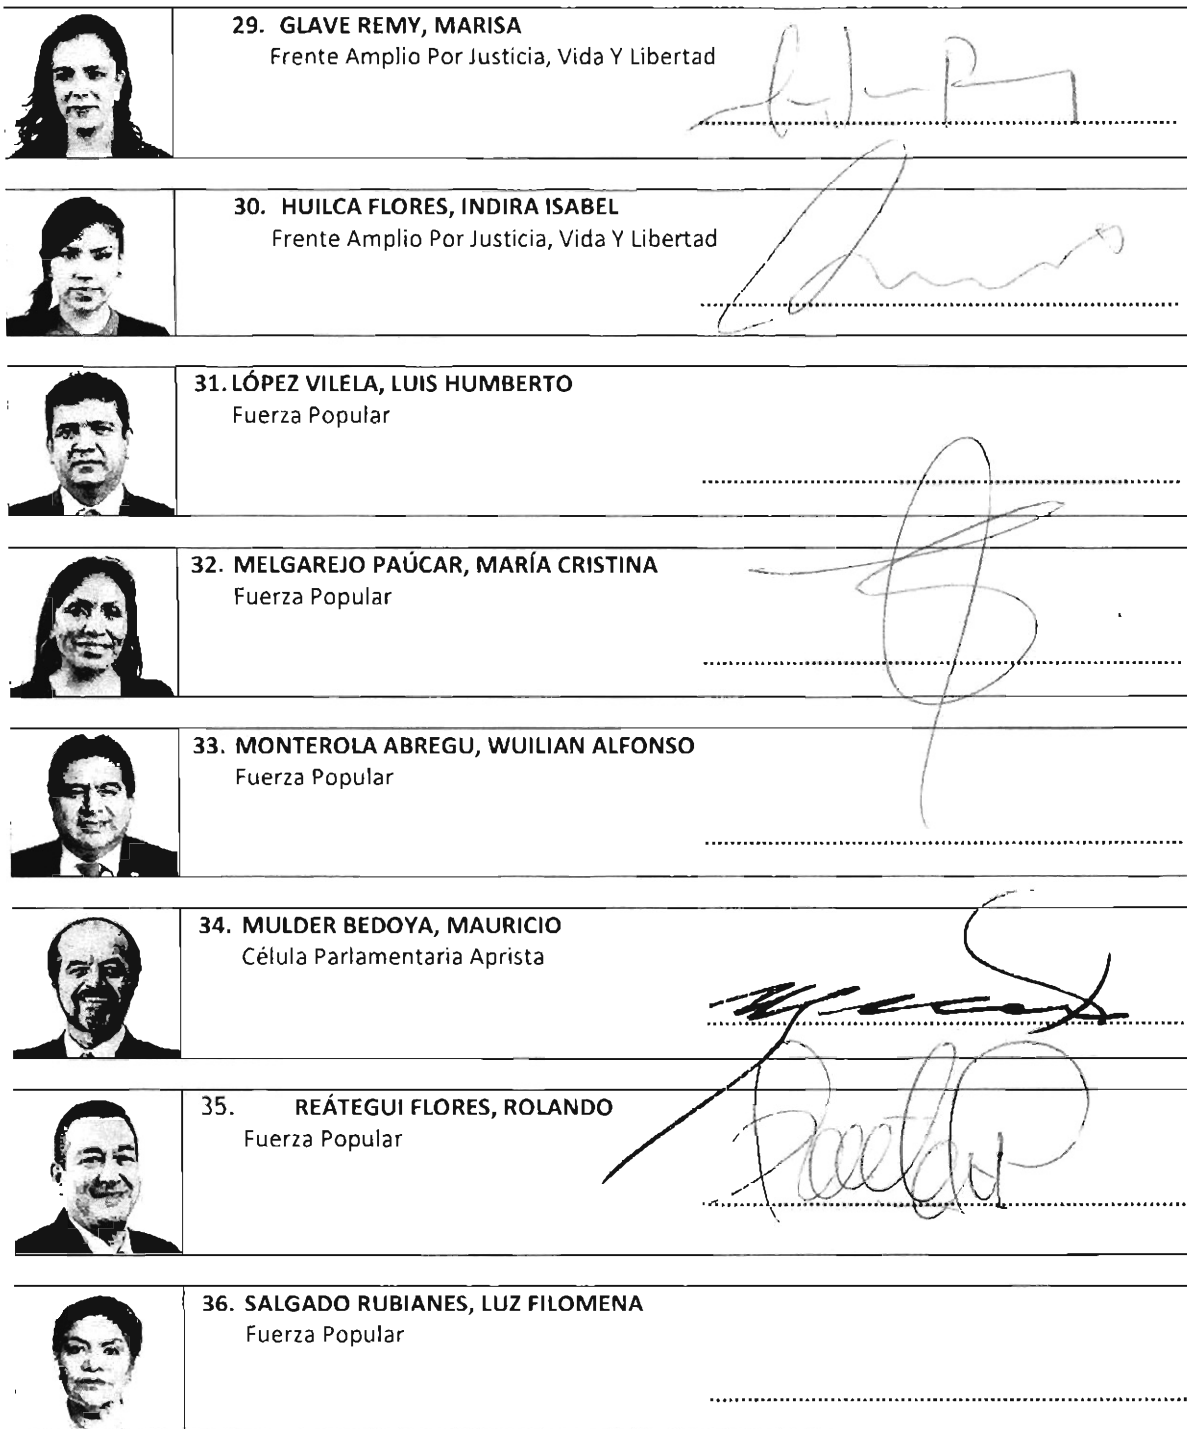 29. GLAVE REMY, MARISA
Frente Amplio Por Justicia, Vida Y Libertad
30. HUILCA FLORES, INDIRA ISABEL
Frente Amplio Por Justicia, Vida Y Libertad
31. LÓPEZ VILELA, LUIS HUMBERTO
Fuerza Popular
32. MELGAREJO PAÚCAR, MARÍA CRISTINA
Fuerza Popular
33. MONTEROLA ABREGU, WUILIAN ALFONSO
Fuerza Popular
34. MULDER BEDOYA, MAURICIO
Célula Parlamentaria Aprista
35. REÁTEGUI FLORES, ROLANDO
Fuerza Popular
36. SALGADO RUBIANES, LUZ FILOMENA
Fuerza Popular